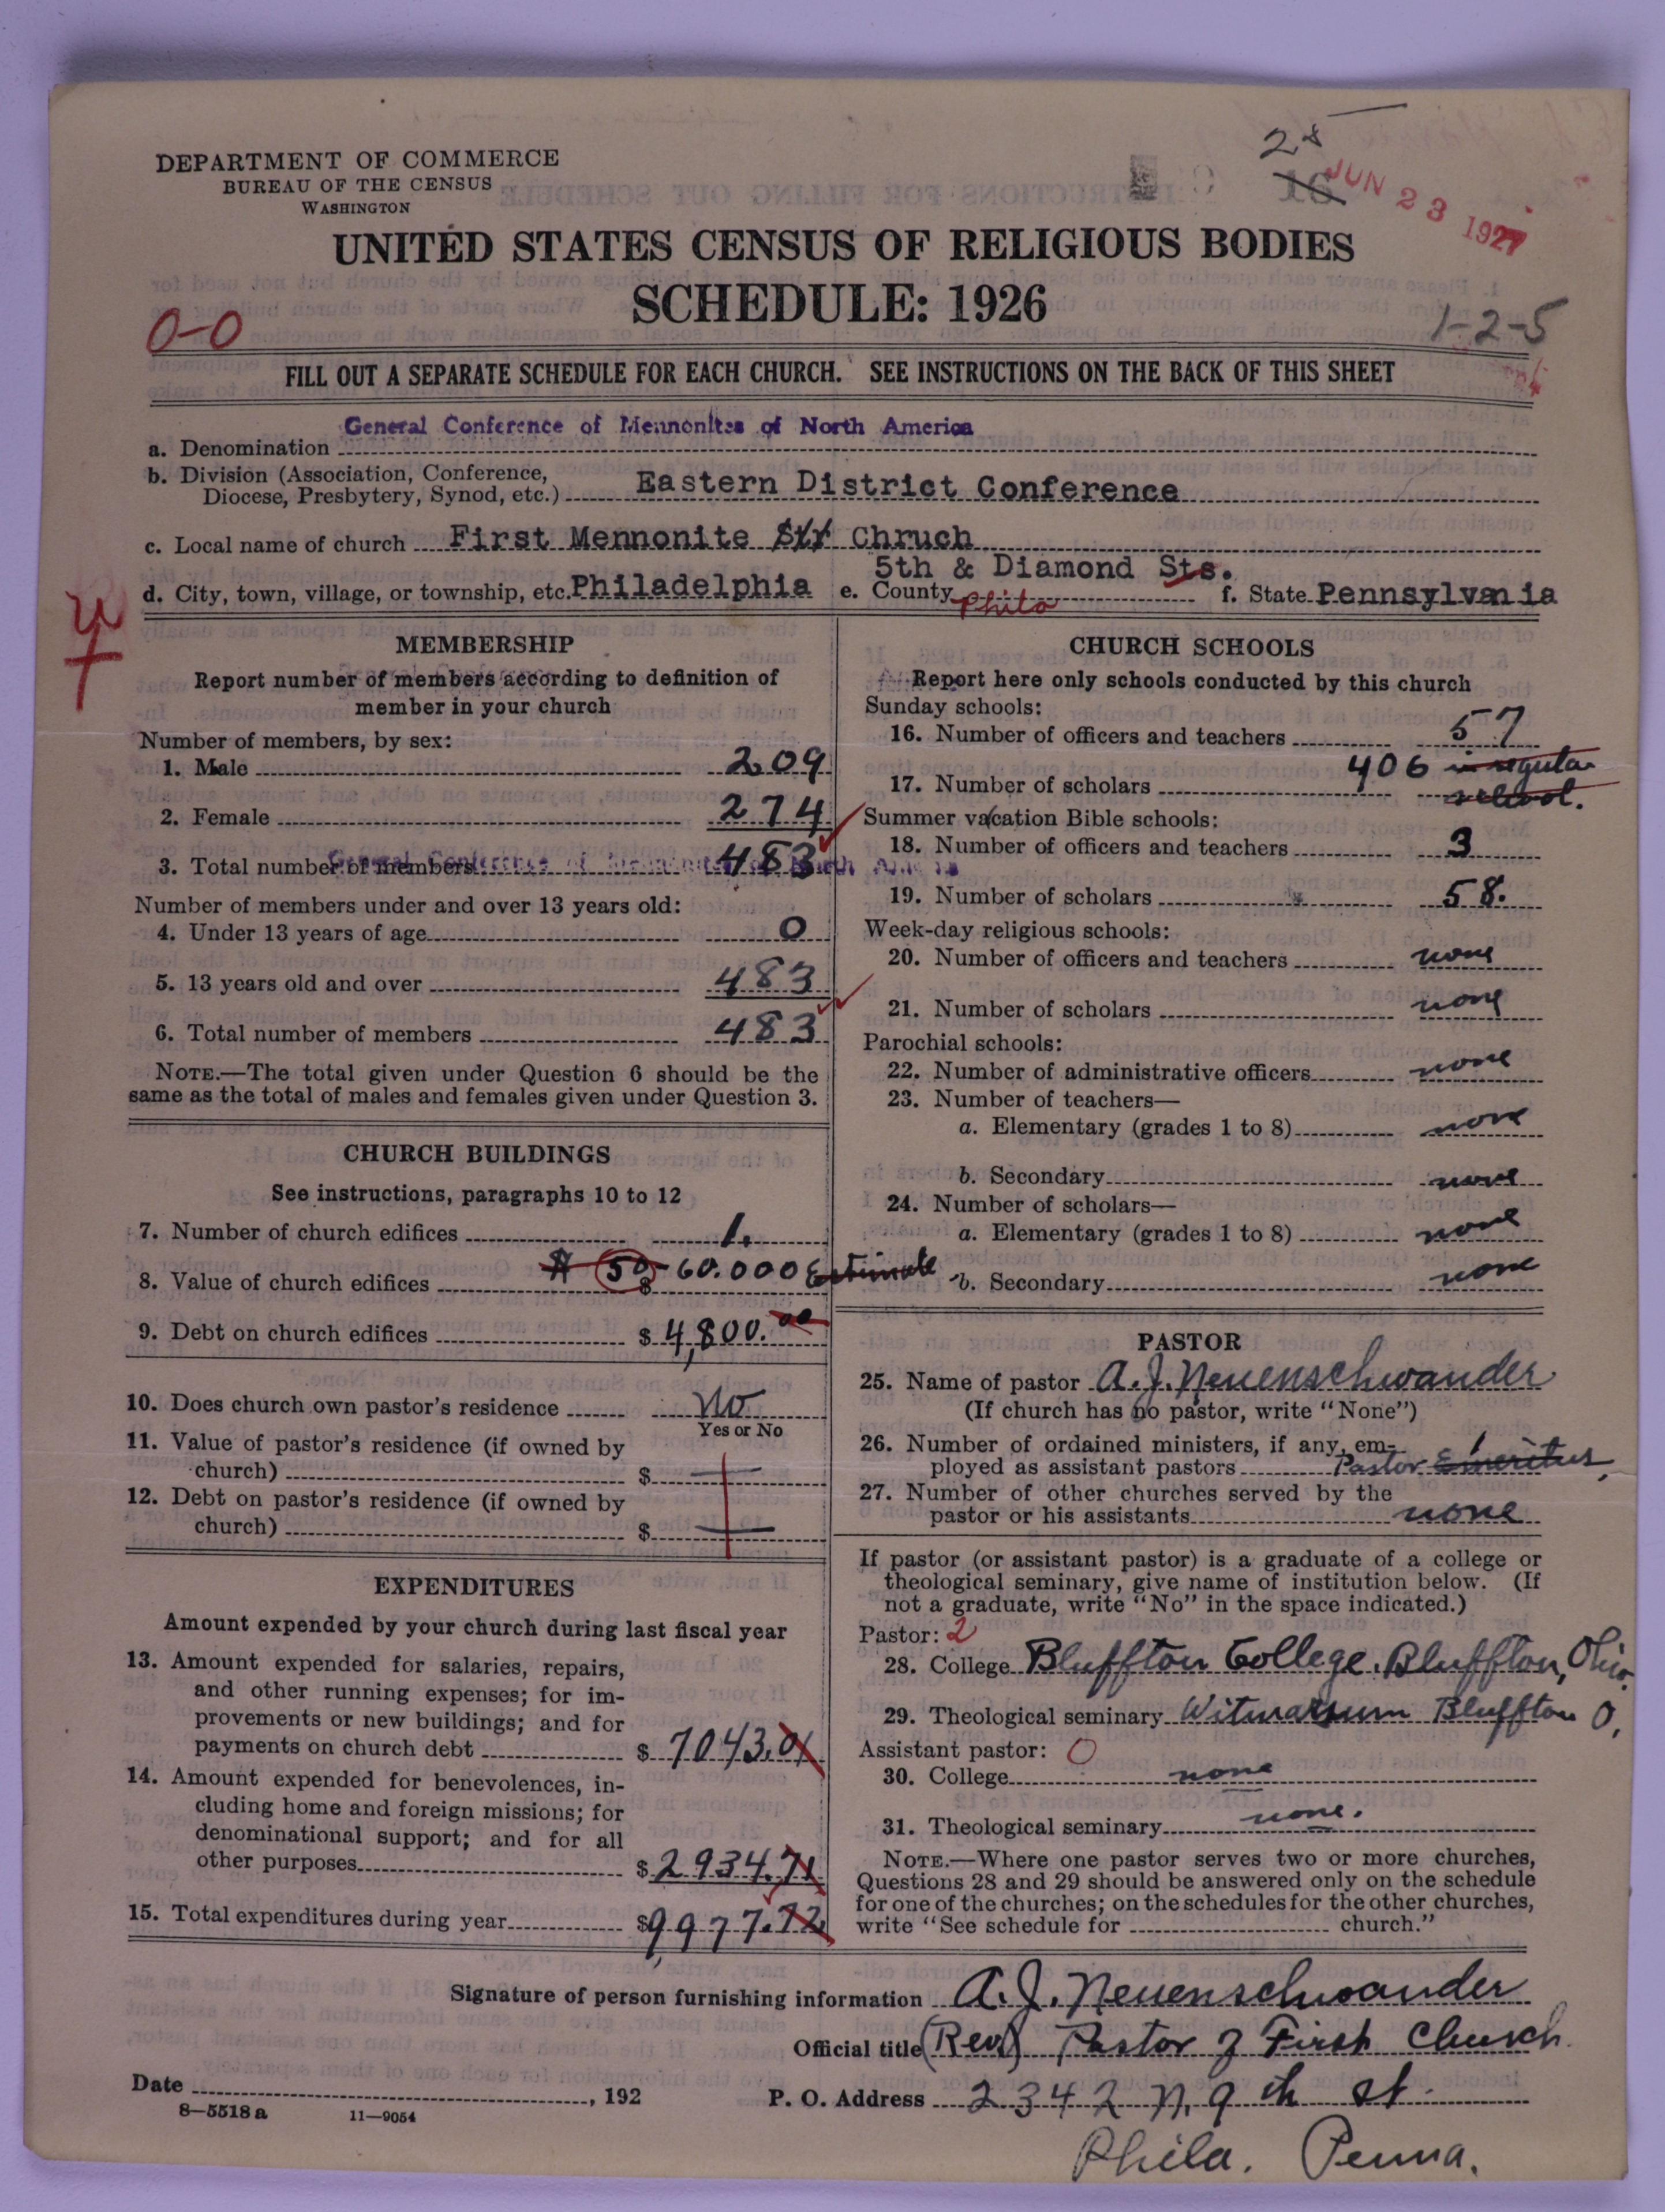 DEPARTMENT OF COMMERCE
BUREAU OF THE CENSUS
WASHINGTON
JUN 23 1927
UNITED STATES CENSUS OF RELIGIOUS BODIES
SCHEDULE: 1926
0-0
1-2-5
FILL OUT A SEPARATE SCHEDULE FOR EACH CHURCH. SEE INSTRUCTIONS ON THE BACK OF THIS SHEET
a. Denomination General Conference of Mennonites of North America
b. Division (Association, Conference,
Diocese, Presbytery, Synod, etc.) Eastern District Conference
c. Local name of church First Mennonite Chruch
5th & Diamond Sts.
d. City, town, village, or township, etc. Philadelphia e. County Phila f. State Pennsylvania
MEMBERSHIP
Report number of members according to definition of
member in your church
Number of members, by sex:
1. Male 209
2. Female 274
3. Total number of members 483
General Conference of Mennonites of North America
Number of members under and over 13 years old:
4. Under 13 years of age 0
5. 13 years old and over 483
6. Total number of members 483
NOTE.—The total given under Question 6 should be the
same as the total of males and females given under Question 3.
CHURCH BUILDINGS
See instructions, paragraphs 10 to 12
7. Number of church edifices 1.
8. Value of church edifices $ 50-60.000 Estimate
9. Debt on church edifices $ 4,800.00
10. Does church own pastor's residence No
Yes or No
11. Value of pastor's residence (if owned by
church) $
12. Debt on pastor's residence (if owned by
church) $
EXPENDITURES
Amount expended by your church during last fiscal year
13. Amount expended for salaries, repairs,
and other running expenses; for im-
provements or new buildings; and for
payments on church debt $ 7043.01
14. Amount expended for benevolences, in-
cluding home and foreign missions; for
denominational support; and for all
other purposes $ 2934.71
15. Total expenditures during year $ 9977.72
CHURCH SCHOOLS
Report here only schools conducted by this church
Sunday schools:
16. Number of officers and teachers 57
17. Number of scholars 406 in regular
school.
Summer vacation Bible schools:
18. Number of officers and teachers 3
19. Number of scholars 58.
Week-day religious schools:
20. Number of officers and teachers none
21. Number of scholars none
Parochial schools:
22. Number of administrative officers none
23. Number of teachers—
a. Elementary (grades 1 to 8) none
b. Secondary none
24. Number of scholars—
a. Elementary (grades 1 to 8) none
b. Secondary none
PASTOR
25. Name of pastor A. J. Neuenschwander
(If church has no pastor, write "None")
26. Number of ordained ministers, if any, em-
ployed as assistant pastors 1 Pastor Emeritus.
27. Number of other churches served by the
pastor or his assistants none
If pastor (or assistant pastor) is a graduate of a college or
theological seminary, give name of institution below. (If
not a graduate, write "No" in the space indicated.)
Pastor: 2
28. College Bluffton College. Bluffton, Ohio.
29. Theological seminary Witmarsum Bluffton O.
Assistant pastor: 0
30. College none
31. Theological seminary none.
NOTE.—Where one pastor serves two or more churches,
Questions 28 and 29 should be answered only on the schedule
for one of the churches; on the schedules for the other churches,
write "See schedule for church."
Signature of person furnishing information A. J. Neuenschwander
Official title (Rev) Pastor of First Church
Date , 192 P. O. Address 2342 N. 9th St.
8—5518 a 11—9054
Phila. Penna.